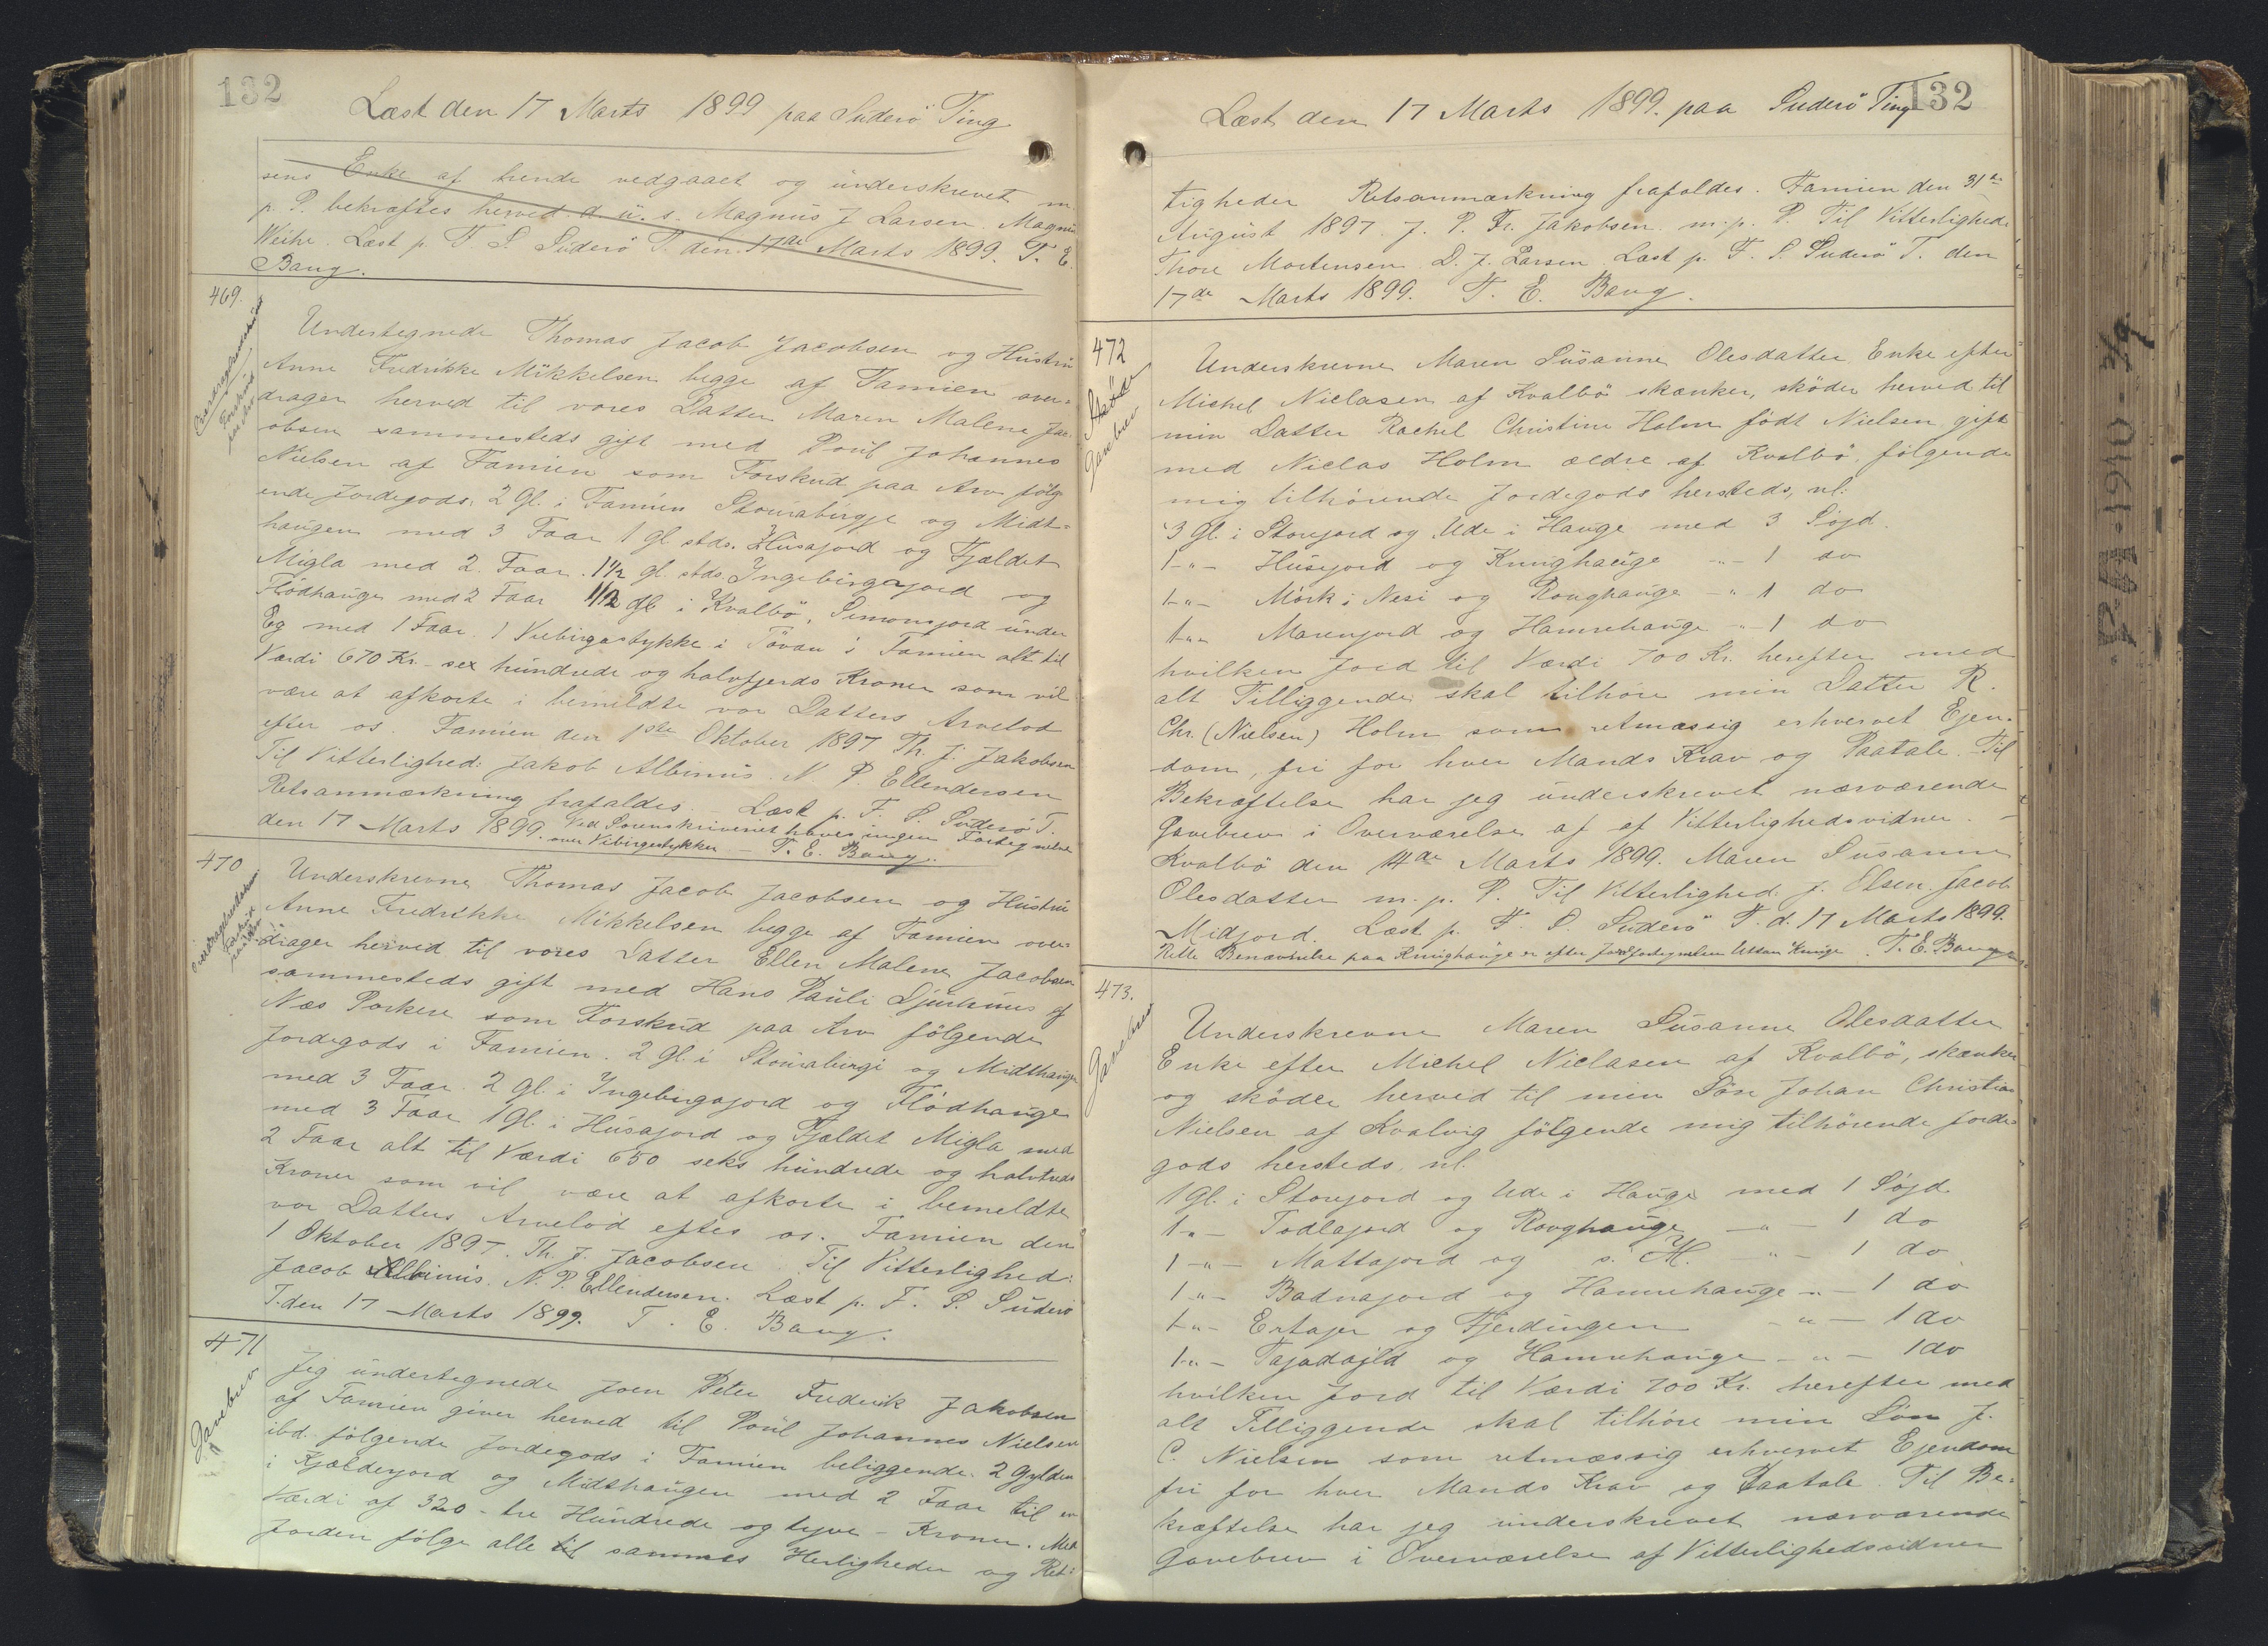 132
Læst den 17 Marts 1899 paa Suderö Ting
sens Enke af hende vedgaaet og underskrevet m.
p. P. bekræftes herved. d. u. s. Magnus J Larsen. Magnus
Weihe. Læst p. F. S. Suderö T. den 17de Marts 1899. T. E.
Bang.
469.
Overdragelsesdokument
Forskud
paa Arv
Undertegnede Thomas Jacob Jacobsen og Hustru
Anne Fredrikke Mikkelsen begge af Famien over-
drager herved til vores Datter Maren Malene Jac-
obsen sammesteds gift med Poul Johannes
Nielsen af Famien som Forskud paa Arv følg-
ende Jordegods: 2 Gl. i Famien Stourabirgje og Midt-
haugen med 3 Faar 1 gl stds. Husajord og Fjældet
Migla med 2 Faar. 1½ gl. stds. Ingebirgajord og
Flödhauge med 2 Faar 1/12 gl i Kvalbö, Simonsjord under
Eg med 1 Faar. 1 Viebirgastykke i Tövau i Famien alt til
Værdi 670 Kr - sex hundrede og halvfjerds Kroner som vil
være at afkorte i bemeldte vor Datters Arvelod
efter os. Famien den 1ste Oktober 1897 Th. J. Jakobsen
Til Vitterlighed: Jakob Albinus. N. P. Ellendersen
Retsanmærkning frafaldes. Læst p. F. S. Suderö T.
den 17 Marts 1899. Ved Sorenskriveriet haves ingen Fortegnelse
over Vibirgestykker - T. E. Bang.
470
Overdragelsesdokum.
Forskud
paa Arv
Underskrevne Thomas Jacob Jacobsen og Hustru
Anne Fredrikke Mikkelsen begge af Famien over-
drager herved til vores Datter Ellen Malene Jacobsen
sammesteds gift med Hans Pauli Djurhuus af
Næs Porkere som Forskud paa Arv følgende
Jordegods i Famien. 2 Gl. i Stourabirgi og Midthauge
med 3 Faar. 2 gl. i Ingebirgajord og Flödhauge
med 3 Faar 1 Gl. i Husajord og Fjældet Migla med
2 Faar alt til Værdi 650 seks hundrede og halvtreds
Kroner som vil være at afkorte i bemeldte
vor Datters Arvelod efter os. Famien den
1 Oktober 1897. Th. J. Jacobsen. Til Vitterlighed:
Jacob Albinus. N. P. Ellendersen. Læst p. F. S. Suderö
T. den 17 Marts 1899. T. E. Bang.
471
Gavebrev
Jeg undertegnede Joen Peter Frederik Jakobsen
af Famien giver herved til Poul Johannes Nielsen
ibd. følgende Jordegods i Famien beliggende: 2 Gylden
i Kjælderjord og Midthaugen med 2 Faar til en
Værdi af 320 - tre Hundrede og tyve - Kroner. Med
Jorden følge alle til sammes Herligheder og Ret-
132
Læst den 17 Marts 1899. paa Suderö Ting
tigheder Retsanmærkning frafaldes. Famien den 31te
August 1897. J. P. Fr. Jakobsen. m. p. P. Til Vitterlighed:
Thore Mortensen. D. J. Larsen. Læst p. F. S. Suderö T. den
17de Marts 1899. T. E. Bang.
472
Skøde
Gavebrev
Underskrevne Maren Susanne Olesdatter Enke efter
Michel Niclasen af Kvalbö skænker, sköder herved til
min Datter Rachel Christine Holm født Nielsen gift
med Niclas Holm ældre af Kvalbö. følgende
mig tilhörende Jordegods hersteds, nl:
3 gl. i Storejord og Ude i Hauge med 3 Söjd.
1 -"- Husejord og Kunighauge -"- 1 do
1 -"- Mörk i Nesi og Roughauge -"- 1 do
1 -"- Marenjord og Hamrehauge -"- 1 do
hvilken Jord til Værdi 700 Kr. herefter med
alt Tilliggende skal tilhöre min Datter R.
Chr. (Nielsen) Holm som retmæssig erhvervet Ejen-
dom, fri for hver Mands Krav og Paatale. Til
Bekræftelse har jeg underskrevet nærværende
Gavebrev i Overværelse af af Vitterlighedsvidner. -
Kvalbö den 14de Marts 1899. Maren Susanne
Olesdatter m. p. P. Til Vitterlighed. J. Olsen. Jacob
Midjord. Læst p. F. S. Suderö T. d. 17 Marts 1899.
Rette Benævnelse paa Kunighauge er efter Jordfortegnelsen Uttan Kunige. T. E. Bang
473.
Gavebrev
Underskrevne Maren Susanne Olesdatter
Enke efter Michel Niclasen af Kvalbö, skænker
og sköder herved til min Sön Johan Christian
Nielsen af Kvalvig følgende mig tilhörende Jorde-
gods hersteds, nl.
1 gl. i Storejord og Ude i Hauge med 1 Söjd
1 -"- Todlajord og Roughauge -"- 1 do
1 -"- Mattajord og s. H. -"- 1 do
1 -"- Badnajord og Hamrehauge -"- 1 do
1 -"- Ertajer og Fjerdingen -"- 1 do
1 -"- Tajadajld og Hamrehauge -"- 1 do
hvilken Jord til Værdi 700 Kr. herefter med
alt Tilliggende skal tilhöre min Sön J.
C. Nielsen som retmæssig erhvervet Ejendom
fri for hver Mands Krav og Paatale. Til Be-
kræftelse har jeg underskrevet nærværende
Gavebrev i Overværelse af Vitterlighedsvidner